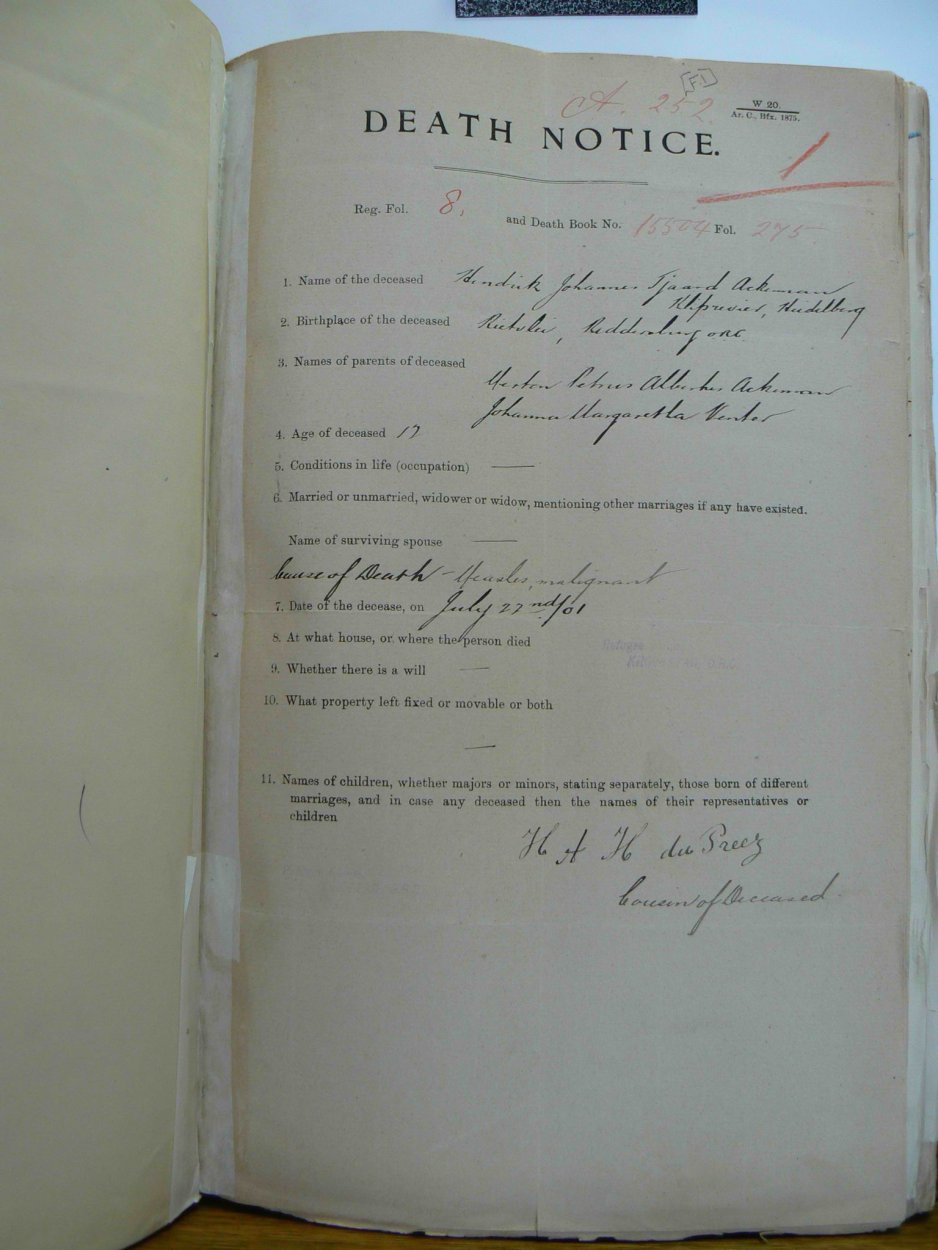 [F1]
A. 252.
W 20.
Ar. C., Bfx. 1875.
DEATH NOTICE.
1
Reg. Fol. 8, and Death Book No. 15504 Fol. 275
1. Name of the deceased Hendrik Johannes Tjaard Ackerman
Kliprivier, Heidelberg
2. Birthplace of the deceased Rietvlei, Reddersburg ORC
3. Names of parents of deceased
Marton Petrus Albertus Ackerman
Johanna Margaretha Venter
4. Age of deceased 17
5. Conditions in life (occupation) —
6. Married or unmarried, widower or widow, mentioning other marriages if any have existed.
Name of surviving spouse —
Cause of Death - Measles, malignant
7. Date of the decease, on July 27nd/01
8. At what house, or where the person died
Refugee
9. Whether there is a will —
10. What property left fixed or movable or both
—
11. Names of children, whether majors or minors, stating separately, those born of different
marriages, and in case any deceased then the names of their representatives or
children
H A H du Preez
Cousin of Deceased.